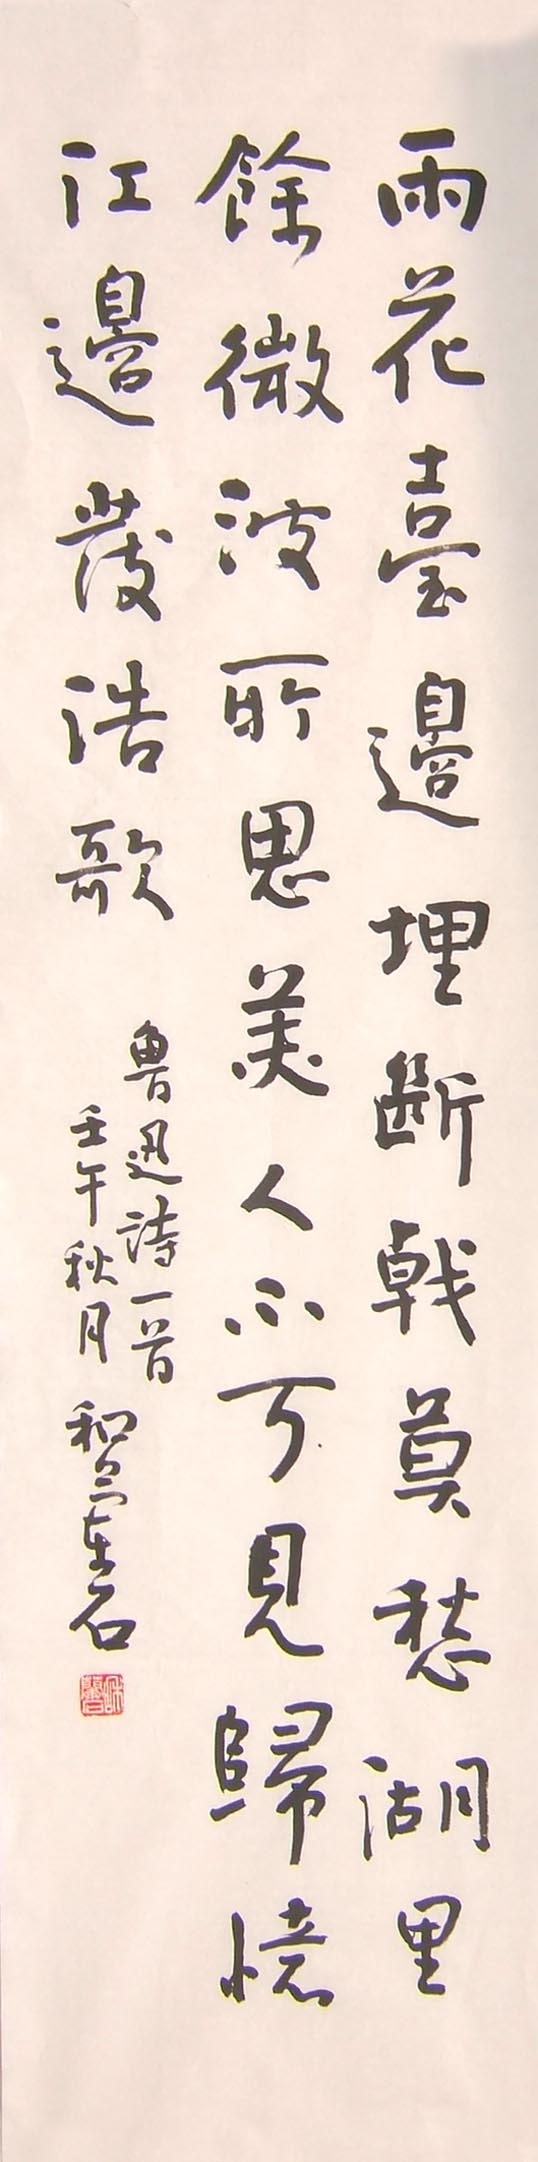 雨花臺邊埋斷戟莫愁湖里
餘微波所思美人不可見歸憶
江邊發浩歌
魯迅詩一首
壬午秋月